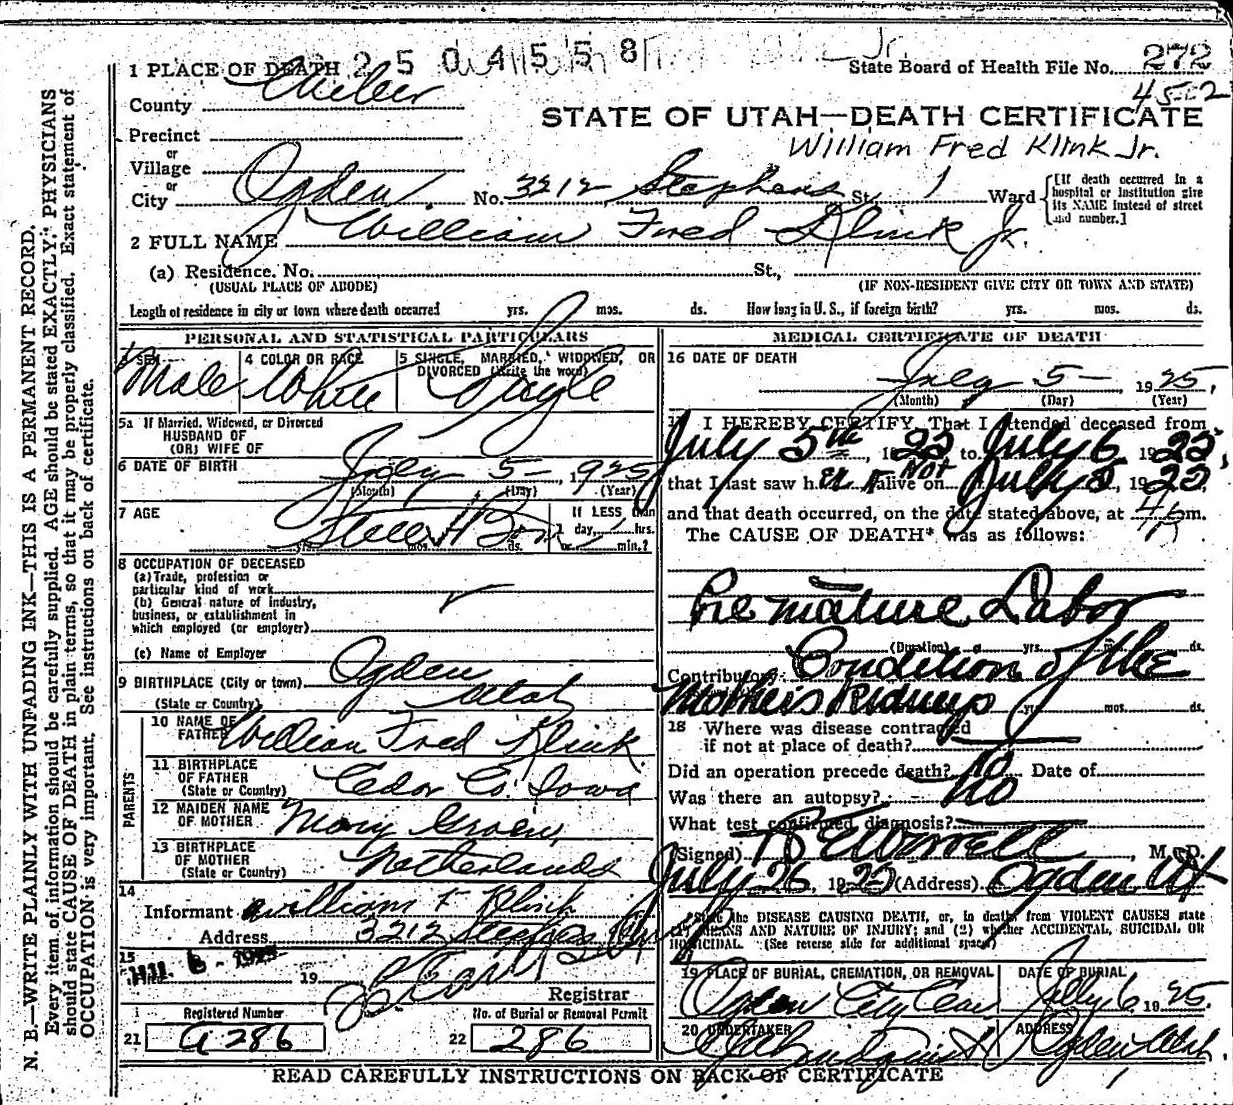 N. B.—WRITE PLAINLY WITH UNFADING INK—THIS IS A PERMANENT RECORD.
Every item of information should be carefully supplied. AGE should be stated EXACTLY. PHYSICIANS
should state CAUSE OF DEATH in plain terms, so that it may be properly classified. Exact statement of
OCCUPATION is very important. See instructions on back of certificate.
2504558
Jr.
State Board of Health File No. 272
4522
1 PLACE OF DEATH
County Weber
STATE OF UTAH—DEATH CERTIFICATE
William Fred Klink Jr.
Precinct
or
Village
or
City Ogden. No. 3212 Stephens St. 1 Ward
[If death occurred in a
hospital or institution give
its NAME instead of street
and number.]
2 FULL NAME William Fred Klink Jr.
(a) Residence. No. St.,
(USUAL PLACE OF ABODE) (IF NON-RESIDENT GIVE CITY OR TOWN AND STATE)
Length of residence in city or town where death occurred yrs. mos. ds. How long in U. S., if foreign birth? yrs. mos. ds.
PERSONAL AND STATISTICAL PARTICULARS
3 SEX Male
4 COLOR OR RACE White
5 SINGLE, MARRIED, WIDOWED, OR
DIVORCED (Write the word) Single
5a If Married, Widowed, or Divorced
HUSBAND OF
(OR) WIFE OF
6 DATE OF BIRTH July 5- 1925
(Month) (Day) (Year)
7 AGE Still Born
yrs. mos. ds.
If LESS than
1 day, hrs.
or min.?
8 OCCUPATION OF DECEASED
(a) Trade, profession or
particular kind of work
(b) General nature of industry,
business, or establishment in
which employed (or employer)
(c) Name of Employer
9 BIRTHPLACE (City or town) Ogden
(State or Country) Utah
PARENTS
10 NAME OF
FATHER William Fred Klink
11 BIRTHPLACE
OF FATHER
(State or Country) Cedar Co. Iowa
12 MAIDEN NAME
OF MOTHER Mary
13 BIRTHPLACE
OF MOTHER
(State or Country) Netherlands
14
Informant William F Klink
Address 3212 Stephens
15
6 - 1925 19
Registrar
Registered Number
21 a 286
No. of Burial or Removal Permit
22 286
MEDICAL CERTIFICATE OF DEATH
16 DATE OF DEATH
July 5- 1925,
(Month) (Day) (Year)
17 I HEREBY CERTIFY, That I attended deceased from
July 5th, 1925 to July 6, 1925,
that I last saw h alive on Not July 5, 1925
and that death occurred, on the date stated above, at m.
The CAUSE OF DEATH* was as follows:
Premature Labor
(Duration) yrs. mos. ds.
Contributory Condition of the
Mother's Kidneys yrs. mos. ds.
18 Where was disease contracted
if not at place of death?
Did an operation precede death? no Date of
Was there an autopsy? No
What test confirmed diagnosis?
(Signed) , M. D.
July 26, 1925 (Address) Ogden Ut
*State the DISEASE CAUSING DEATH, or, in deaths from VIOLENT CAUSES state
(1) MEANS AND NATURE OF INJURY; and (2) whether ACCIDENTAL, SUICIDAL OR
HOMICIDAL. (See reverse side for additional space)
19 PLACE OF BURIAL, CREMATION, OR REMOVAL
Ogden City Cem
DATE OF BURIAL
July 6 1925.
20 UNDERTAKER
ADDRESS
Ogden, Utah.
READ CAREFULLY INSTRUCTIONS ON BACK OF CERTIFICATE